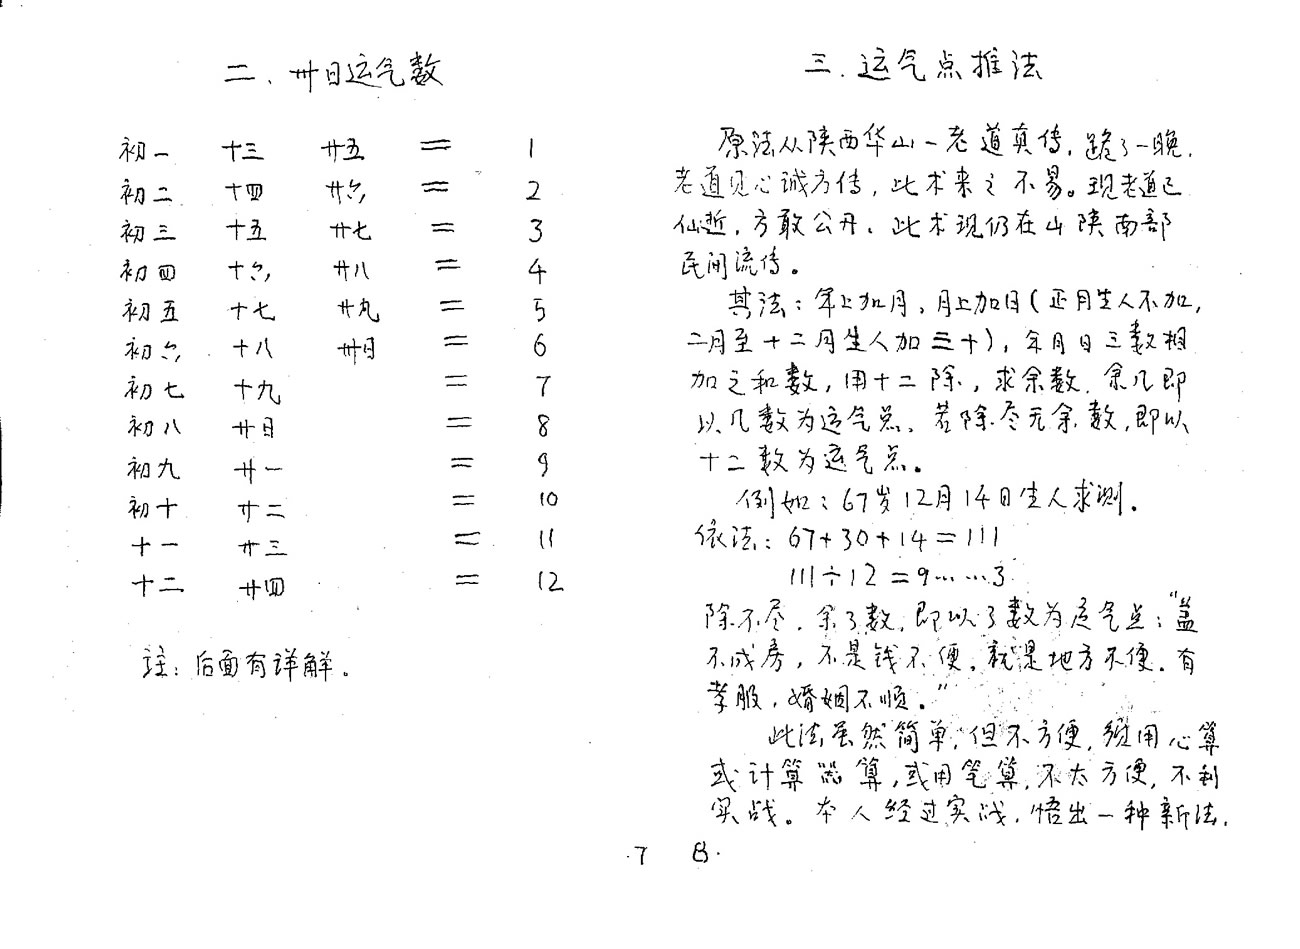 二、卅日运气数
初一 十三 廿五 = 1
初二 十四 廿六 = 2
初三 十五 廿七 = 3
初四 十六 廿八 = 4
初五 十七 廿九 = 5
初六 十八 卅日 = 6
初七 十九 = 7
初八 廿日 = 8
初九 廿一 = 9
初十 廿二 = 10
十一 廿三 = 11
十二 廿四 = 12
注：后面有详解.
·7
三.运气点推法
原法从陕西华山一老道真传,跪了一晚,
老道见心诚方传,此术来之不易。现老道已
仙逝,方敢公开。此术现仍在山陕南部
民间流传。
其法：年上加月,月上加日(正月生人不加,
二月至十二月生人加三十),年月日三数相
加之和数,用十二除,求余数.余几即
以几数为运气点。若除尽无余数,即以
十二数为运气点。
例如：67岁12月14日生人求测.
依法：67+30+14=111
111÷12=9……3
除不尽.余3数,即以3数为运气点："盖
不成房,不是钱不便,就是地方不便.有
孝服,婚姻不顺。"
此法虽然简单,但不方便,须用心算
或计算器算,或用笔算,不太方便,不利
实战。本人经过实战,悟出一种新法,
8·